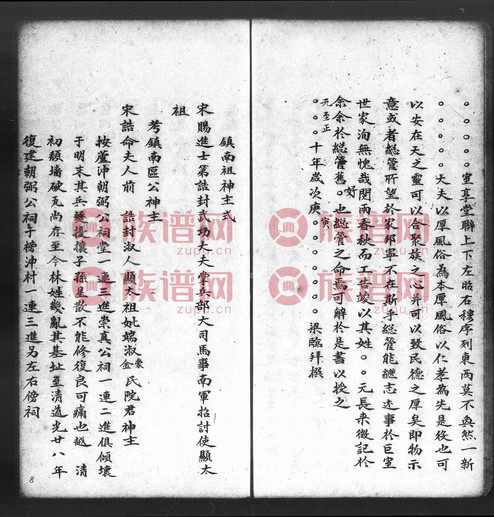 。。。。室享堂聯上下左昭右穆序列東西莫不奐然一新
。。。。。。大夫以厚風俗為本厚風俗以仁孝為先是役也可
以安在天之靈可以合聚族之心并可以致民德之厚矣即物示
意或者總管所望於家邦寧不在斯乎總管能繼志述事於巨室
世家洵無愧哉閱兩春秋而工告竣以其姓。。元長來徵記於
余余於總管舊。好也總管之命焉可解於是書以授之
元至正
。。。。十年歲次庚寅。。。。。。梁臨拜撰
鎮南祖神主式
宋賜進士第誥封武功大夫掌兵部大司馬事南軍招討使顯太
祖
考鎮南區公神主
宋誥命夫人前 誥封淑人顯太祖妣端淑金氏院君神主
按蘆沖朝弼公祠堂一連三進崇真公祠一連二進俱傾壞
于明末其兵擾後攘子孫星散不能修復良可痛也越 清
初頹墻破瓦尚存至今林姓變亂其基址至清道光廿八年
復建朝弼公祠于榜沖村一連三進另左右傍祠
8
族谱网
www.zupu.cn